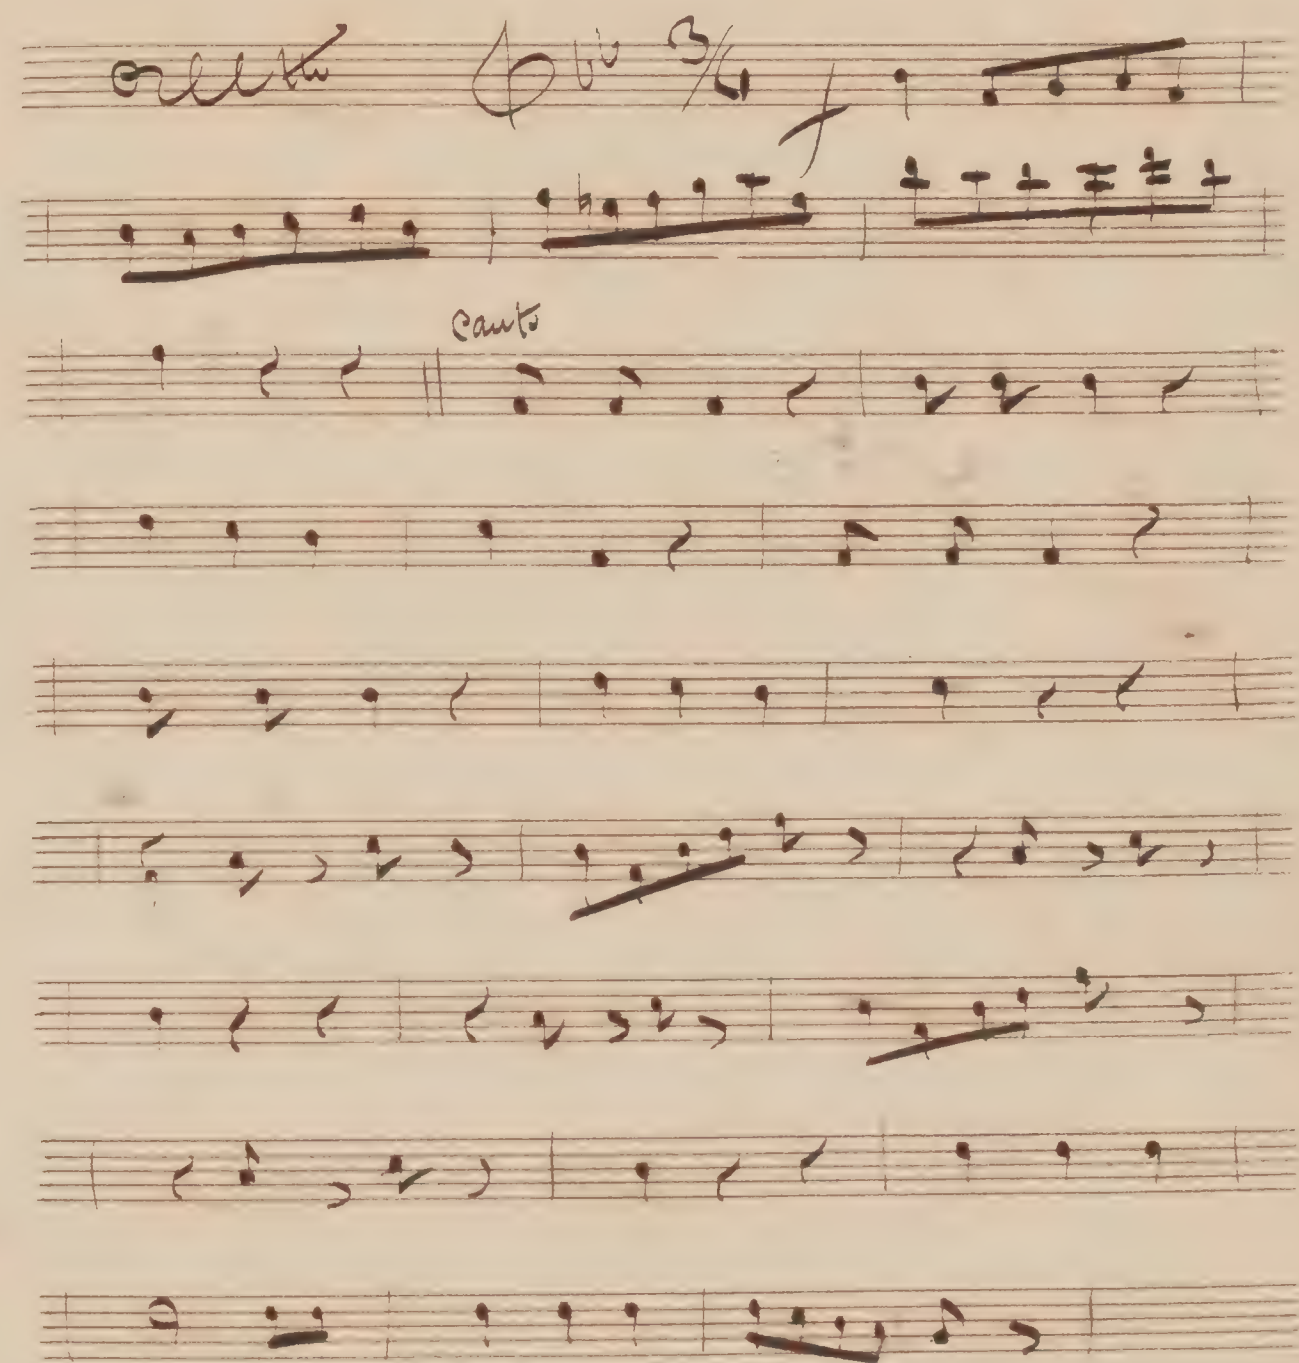 All.tto 3/4 f
Canto